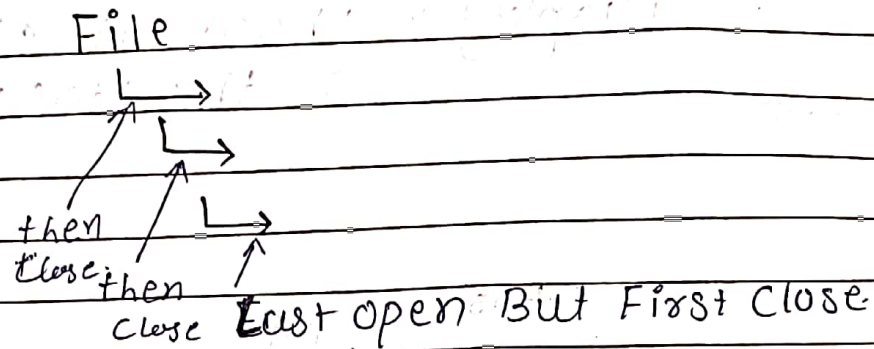 File
then
Close.
then
Close
Last open But First Close.